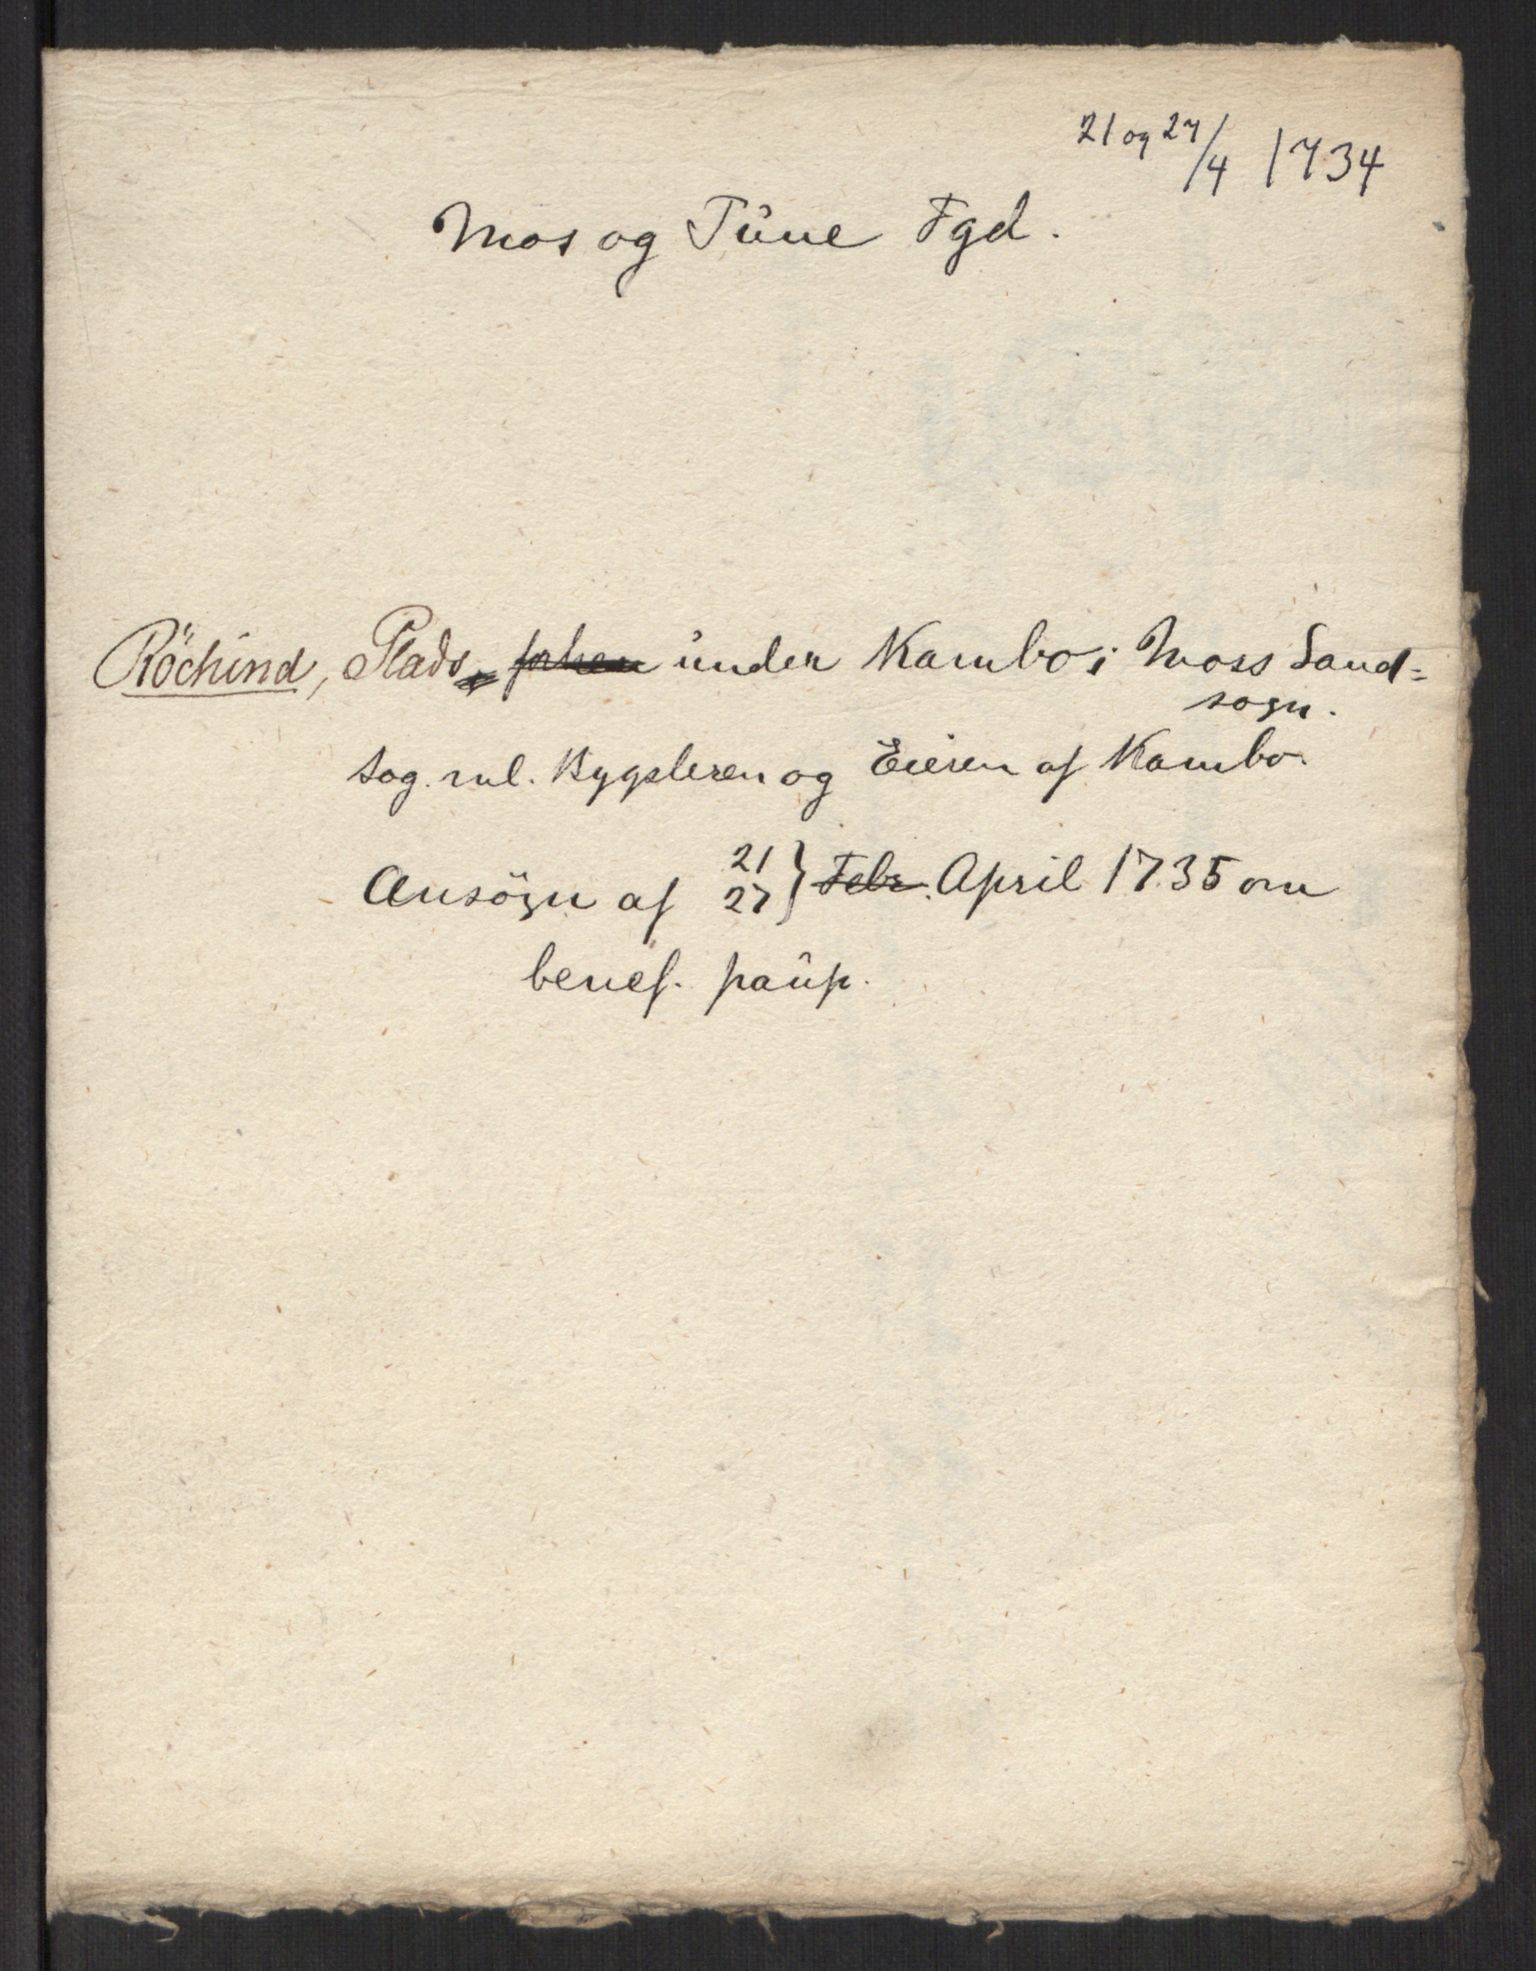 21 og 27/4 1734
Mos og Tune Fgd.
Röchind, Plads under Kambo i Moss Land-
sogn.
Sag. ml. Bygsleren og Eieren af Kambo.
Ansögn af 21 27 } Febr. April 1735 om
benef. paup.